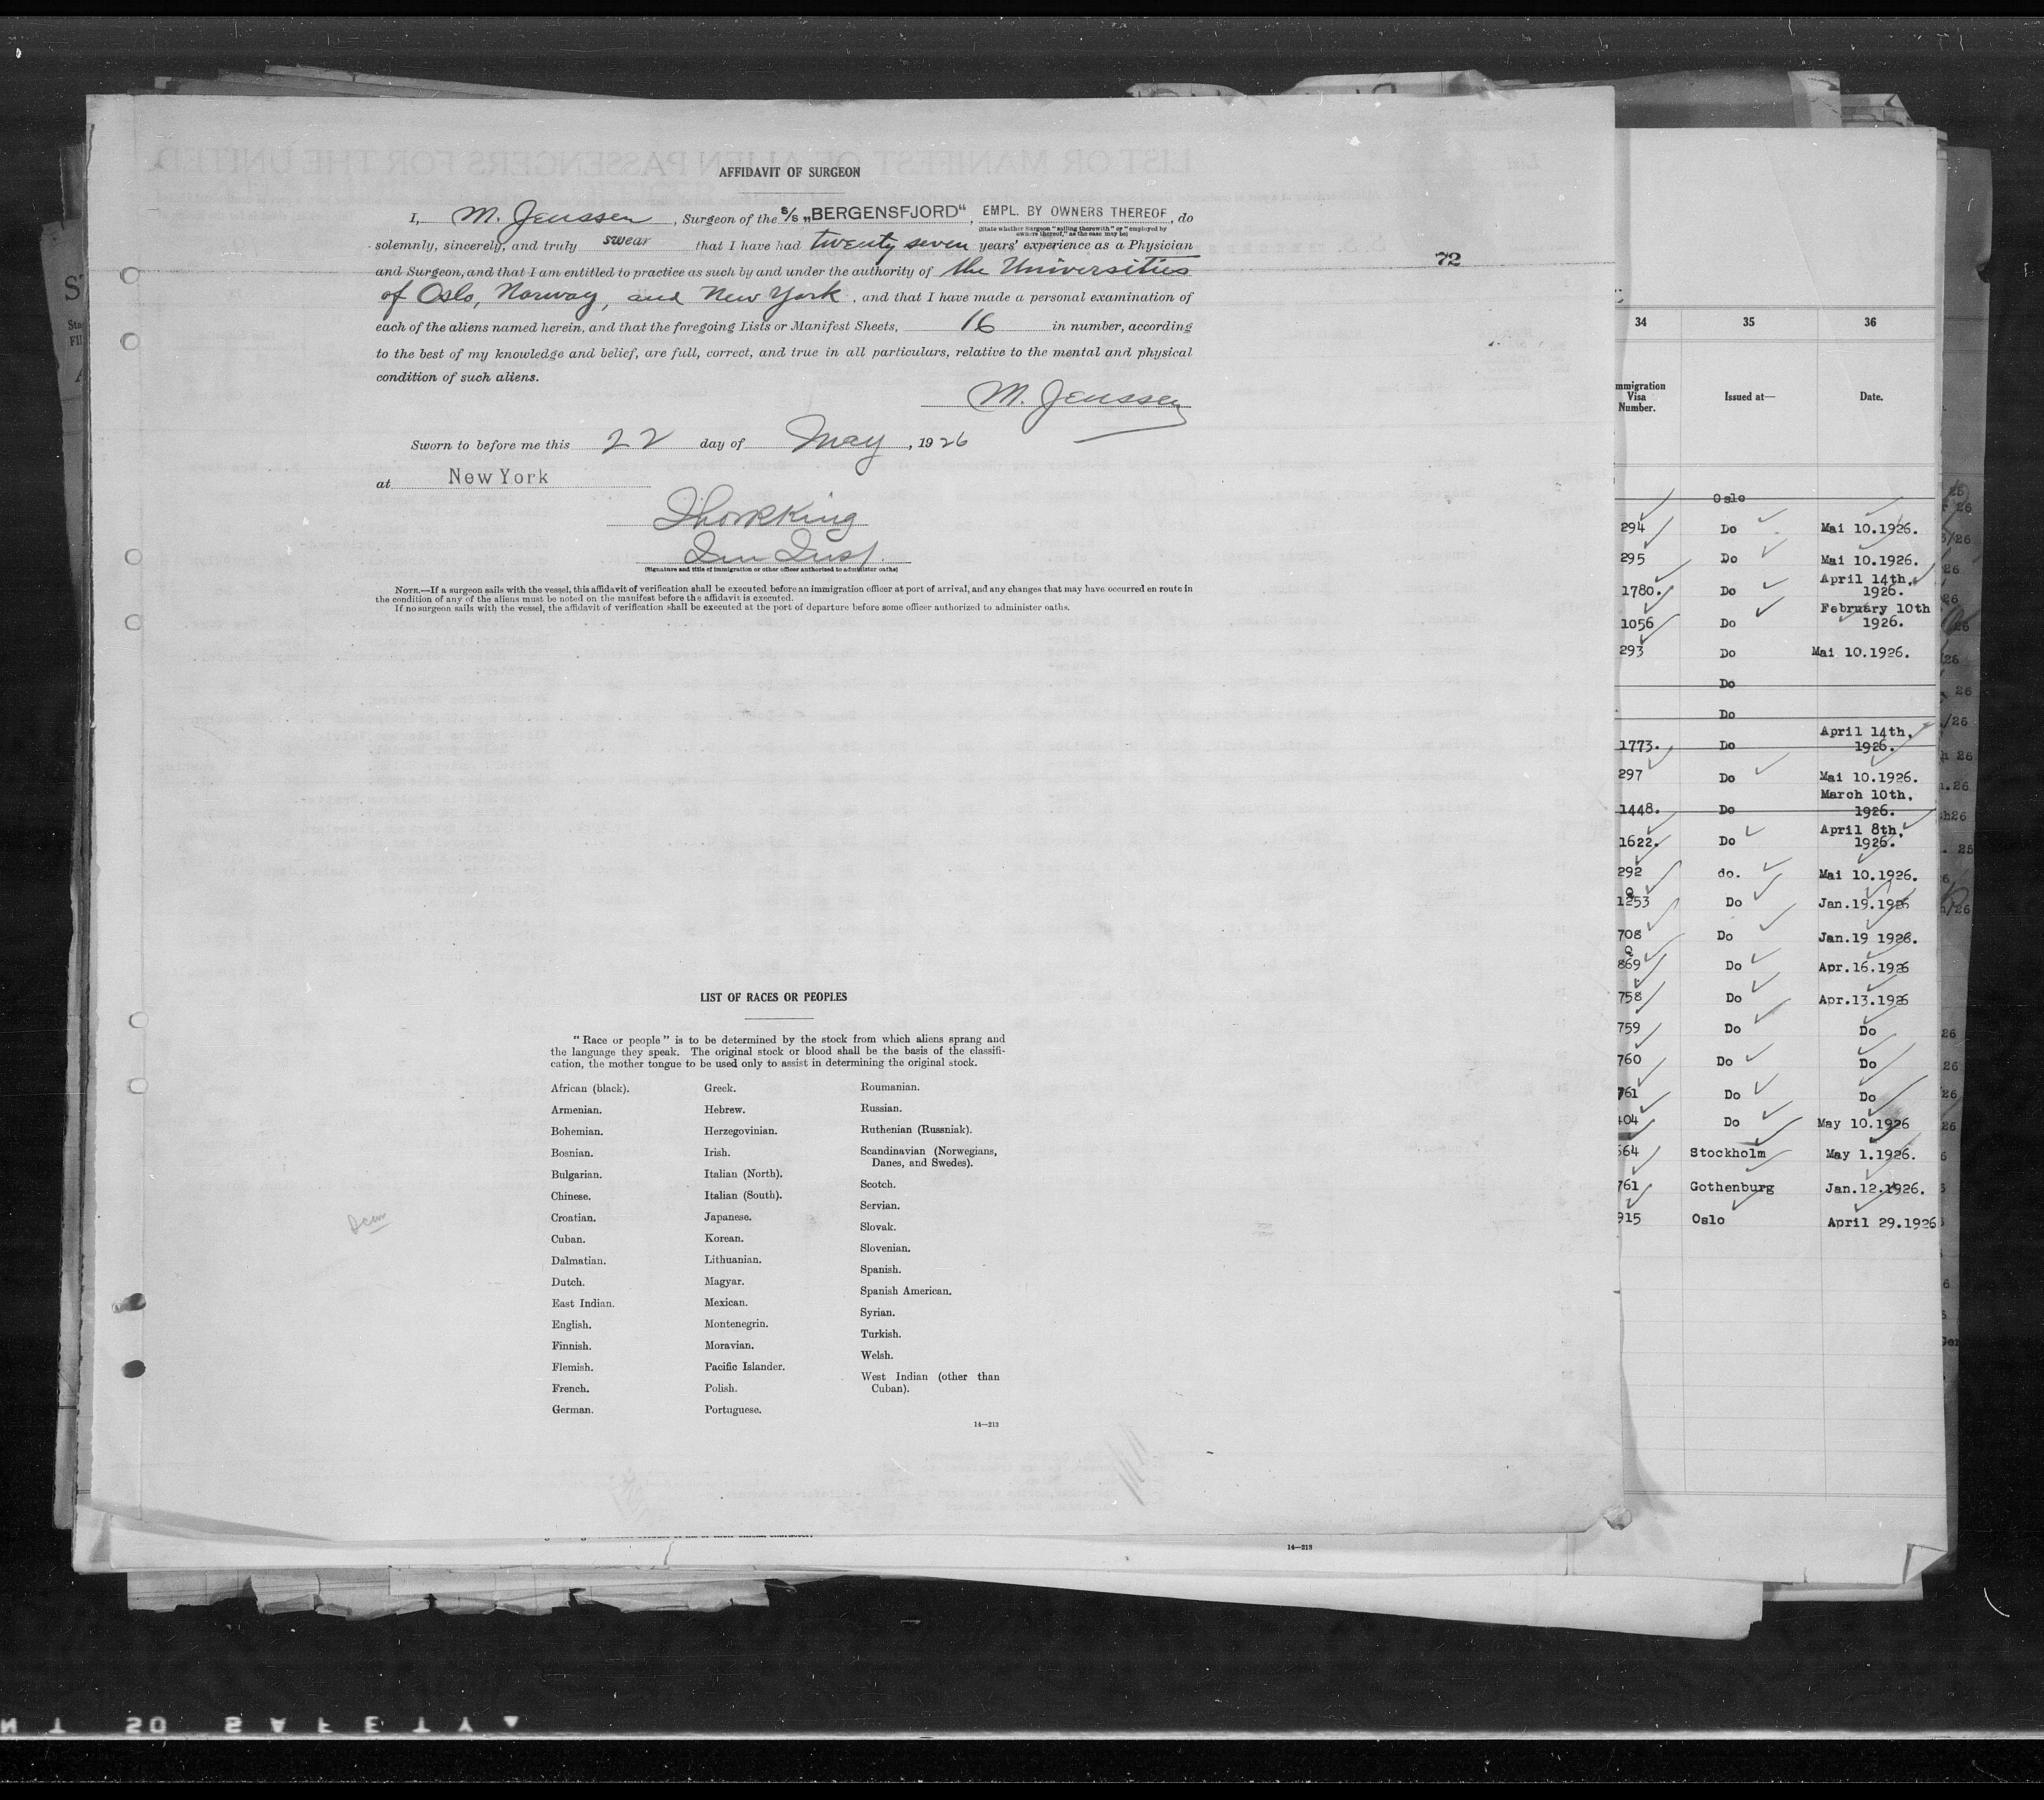 AFFIDAVIT OF SURGEON
I, M. Jenssen, Surgeon of the S/S „BERGENSFJORD“, EMPL. BY OWNERS THEREOF, do
(State whether Surgeon "sailing therewith" or "employed by owners thereof," as the case may be)
solemnly, sincerely, and truly swear that I have had twenty seven years' experience as a Physician
and Surgeon, and that I am entitled to practice as such by and under the authority of the Universities
of Oslo, Norway, and New York, and that I have made a personal examination of
each of the aliens named herein, and that the foregoing Lists or Manifest Sheets, 16 in number, according
to the best of my knowledge and belief, are full, correct, and true in all particulars, relative to the mental and physical
condition of such aliens.
M. Jenssen
Sworn to before me this 22 day of May, 1926
at New York
Imm Insp.
(Signature and title of immigration or other officer authorized to administer oaths)
NOTE.—If a surgeon sails with the vessel, this affidavit of verification shall be executed before an immigration officer at port of arrival, and any changes that may have occurred en route in
the condition of any of the aliens must be noted on the manifest before the affidavit is executed.
If no surgeon sails with the vessel, the affidavit of verification shall be executed at the port of departure before some officer authorized to administer oaths.
72
LIST OF RACES OR PEOPLES
"Race or people" is to be determined by the stock from which aliens sprang and
the language they speak. The original stock or blood shall be the basis of the classifi-
cation, the mother tongue to be used only to assist in determining the original stock.
African (black).
Armenian.
Bohemian.
Bosnian.
Bulgarian.
Chinese.
Croatian.
Cuban.
Dalmatian.
Dutch.
East Indian.
English.
Finnish.
Flemish.
French.
German.
Greek.
Hebrew.
Herzegovinian.
Irish.
Italian (North).
Italian (South).
Japanese.
Korean.
Lithuanian.
Magyar.
Mexican.
Montenegrin.
Moravian.
Pacific Islander.
Polish.
Portuguese.
Roumanian.
Russian.
Ruthenian (Russniak).
Scandinavian (Norwegians,
Danes, and Swedes).
Scotch.
Servian.
Slovak.
Slovenian.
Spanish.
Spanish American.
Syrian.
Turkish.
Welsh.
West Indian (other than
Cuban).
14—213
14—213
34 35 36
Immigration Visa Number. Issued at— Date.
Oslo
294 Do Mai 10.1926.
295 Do Mai 10.1926.
1780. Do April 14th, 1926.
1056 Do February 10th 1926.
293 Do Mai 10.1926.
Do
Do
1773. Do April 14th, 1926.
297 Do Mai 10.1926.
1448. Do March 10th, 1926.
1622. Do April 8th, 1926.
292 do. Mai 10.1926.
1253 Do Jan.19.1926
708 Do Jan.19 1926.
869 Do Apr.16.1926
758 Do Apr.13.1926
759 Do Do
760 Do Do
761 Do Do
404 Do May 10.1926
664 Stockholm May 1.1926.
761 Gothenburg Jan.12.1926.
915 Oslo April 29.1926
SAFETY